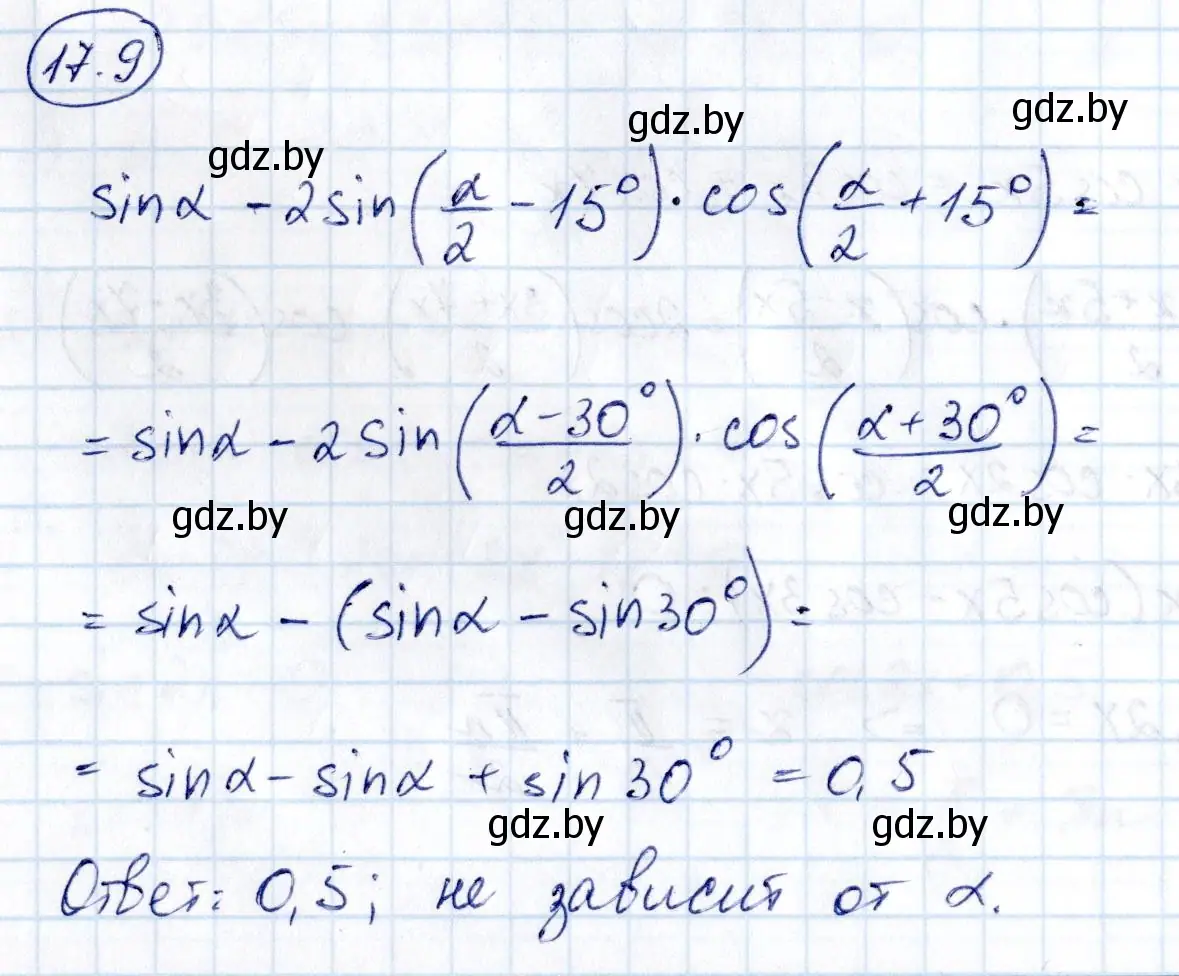 17.9
gdz.by gdz.by gdz.by
sinα - 2sin(α/2 - 15°) · cos(α/2 + 15°) =
= sinα - 2sin((α - 30°)/2) · cos((α + 30°)/2) =
gdz.by gdz.by gdz.by
= sinα - (sinα - sin30°) =
= sinα - sinα + sin 30° = 0,5
gdz.by gdz.by
Ответ: 0,5; не зависит от α.